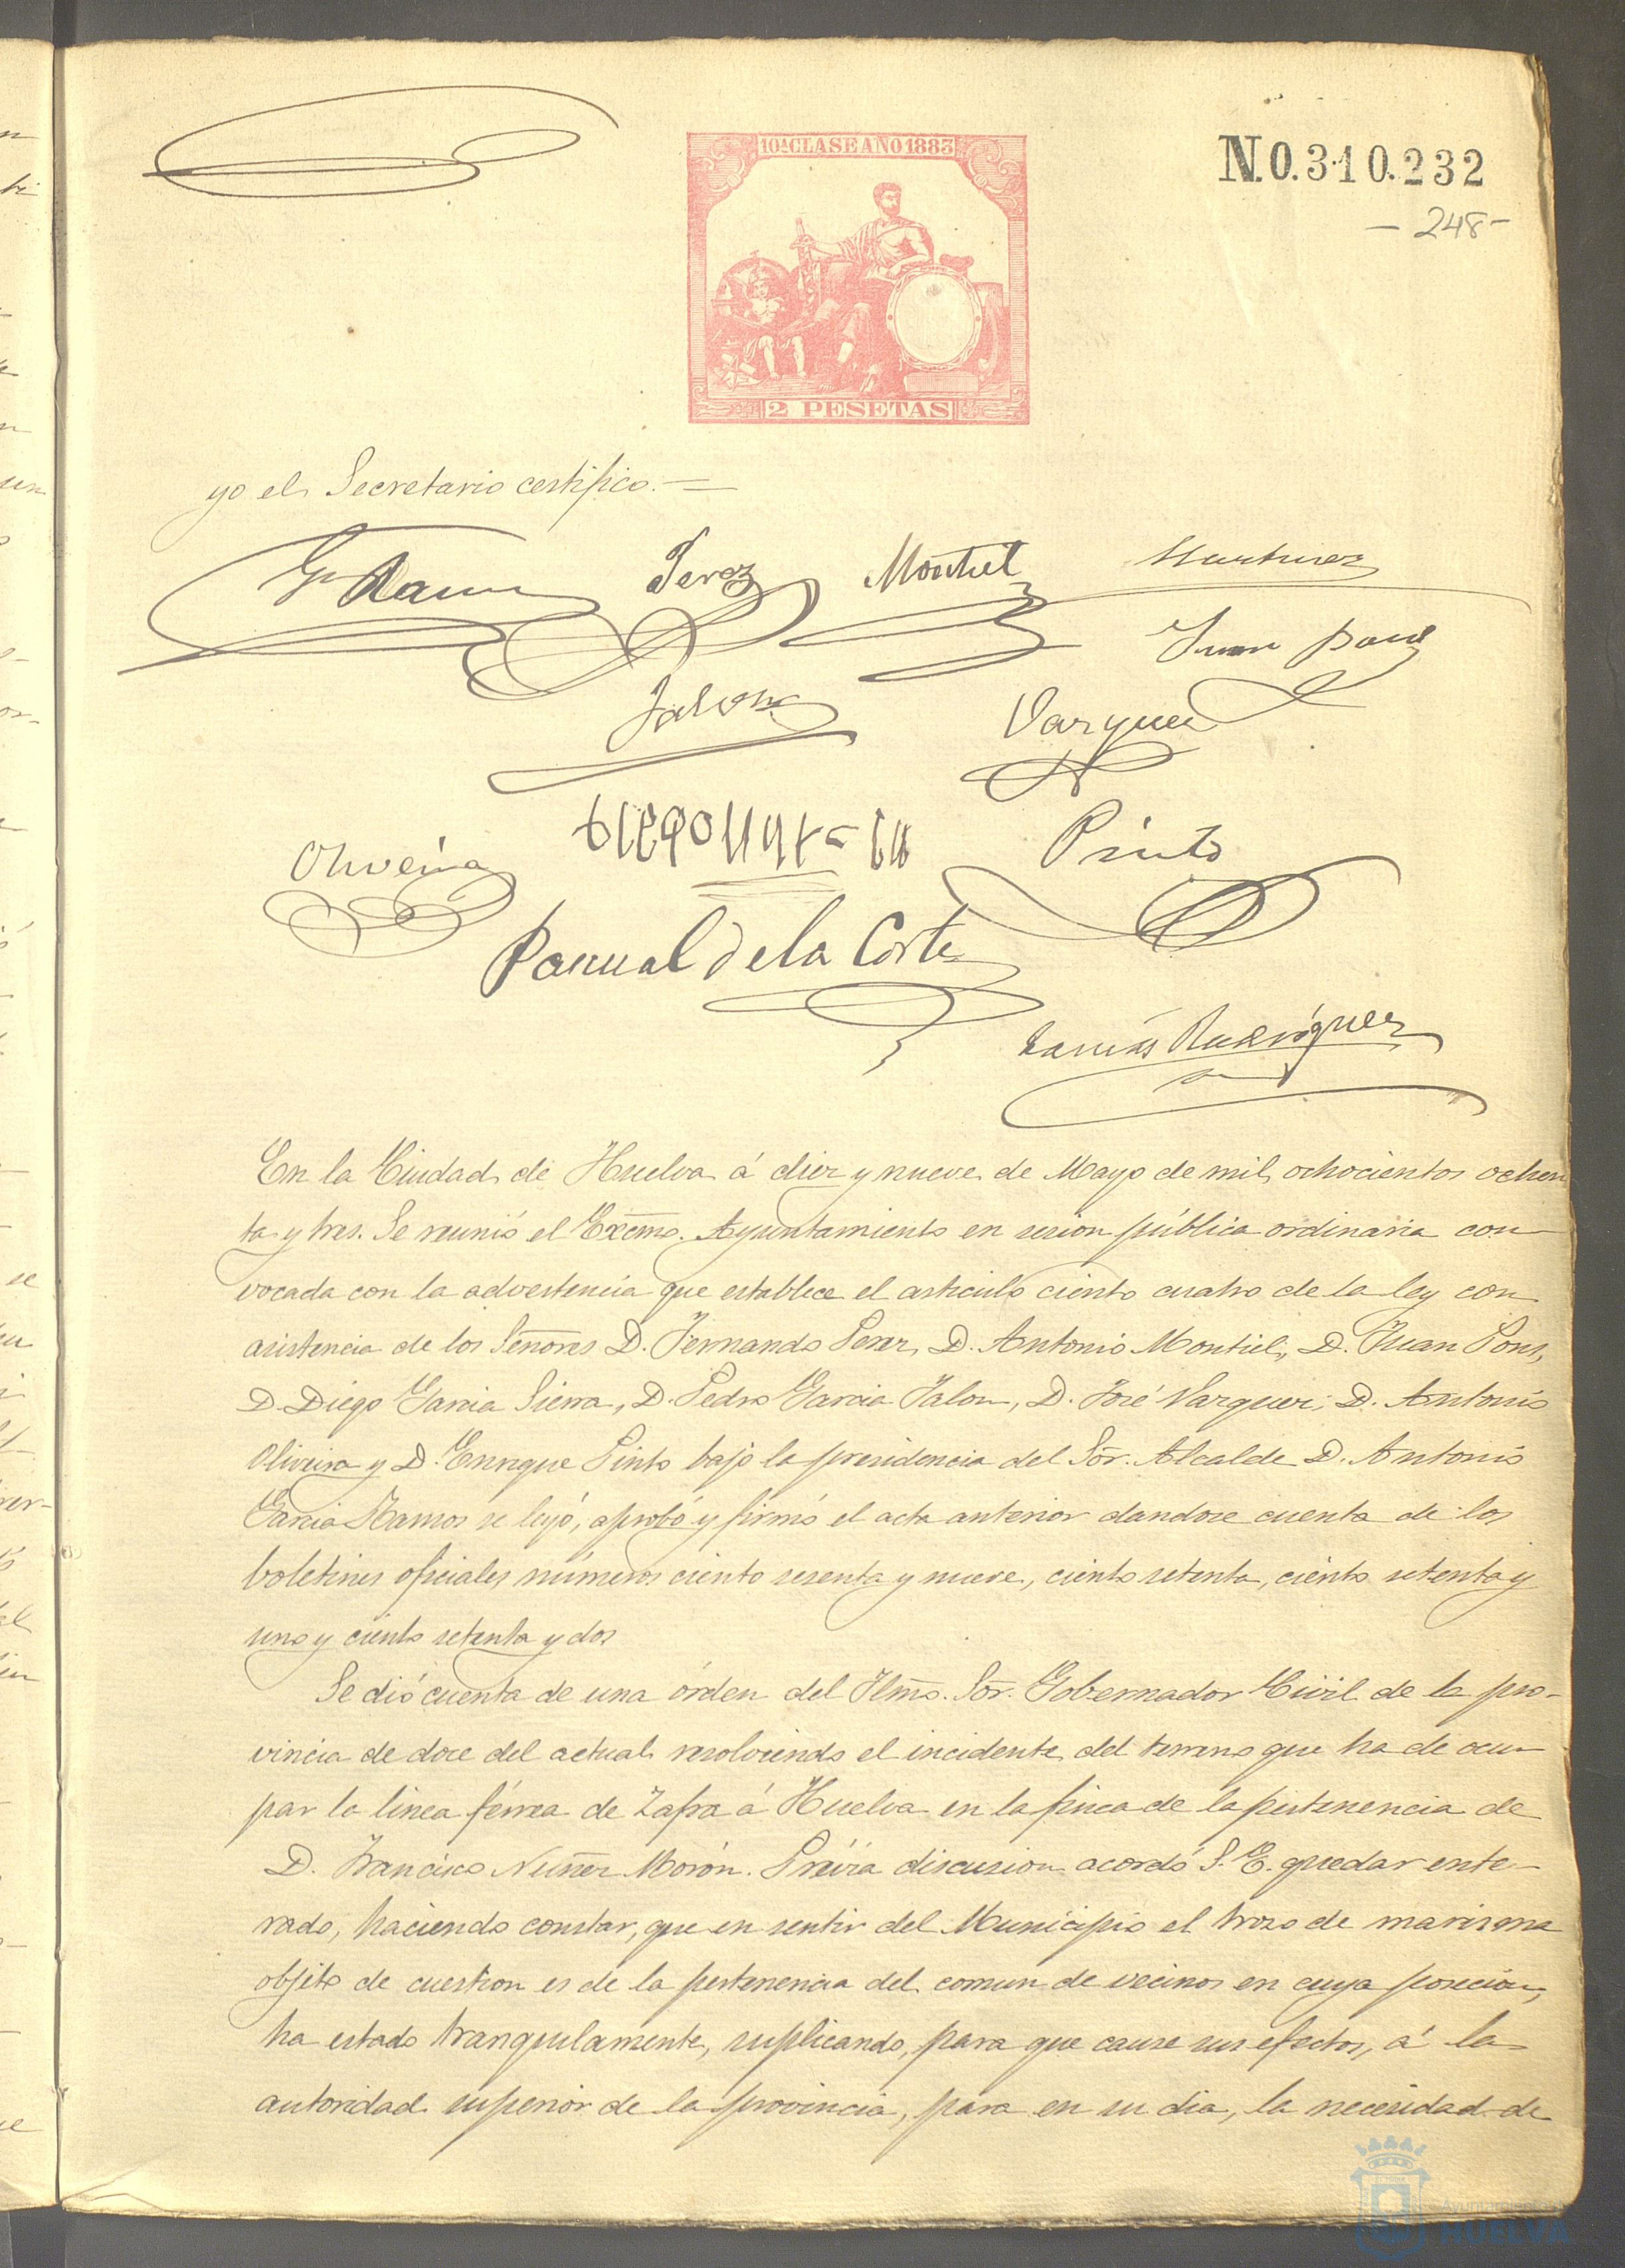 10ª CLASE AÑO 1883
N.0.310.232
- 248 -
2 PESETAS
yo el Secretario certifico. =
G Ramos Perez Montiel Martinez
Juan Pons
Jalon Vazquez
Oliveira Pinto
Pascual de la Corte
Rodriguez
En la Ciudad de Huelva á diez y nueve de Mayo de mil ochocientos ochen
ta y tres. Se reunió el Excmo. Ayuntamiento en sesion pública ordinaria con
vocada con la advertencia que establece el articulo ciento cuatro de la ley con
asistencia de los Señores D. Fernando Perez, D. Antonio Montiel, D. Juan Pons,
D. Diego Garcia Sierra, D. Pedro Garcia Jalon, D. José Vazquez, D. Antonio
Oliveira y D. Enrique Pinto bajo la presidencia del Sor. Alcalde D. Antonio
Garcia Ramos se leyó, aprobó y firmó el acta anterior dandose cuenta de los
boletines oficiales números ciento sesenta y nueve, ciento setenta, ciento setenta y
uno y ciento setenta y dos
Se dió cuenta de una órden del Ilmo. Sor. Gobernador Civil de la pro-
vincia de doce del actual resolviendo el incidente del terreno que ha de ocu-
par la linea férrea de Zafra á Huelva en la finca de la pertenencia de
D. Francisco Nuñez Morón. Prévia discusion acordó S. E. quedar ente-
rado, haciendo constar, que en sentir del Municipio el trozo de marisma
objeto de cuestion es de la pertenencia del comun de vecinos en cuya posecion
ha estado tranquilamente, suplicando, para que cause sus efectos, á la
autoridad superior de la provincia, para en su dia, la necesidad de
Ayuntamiento
HUELVA